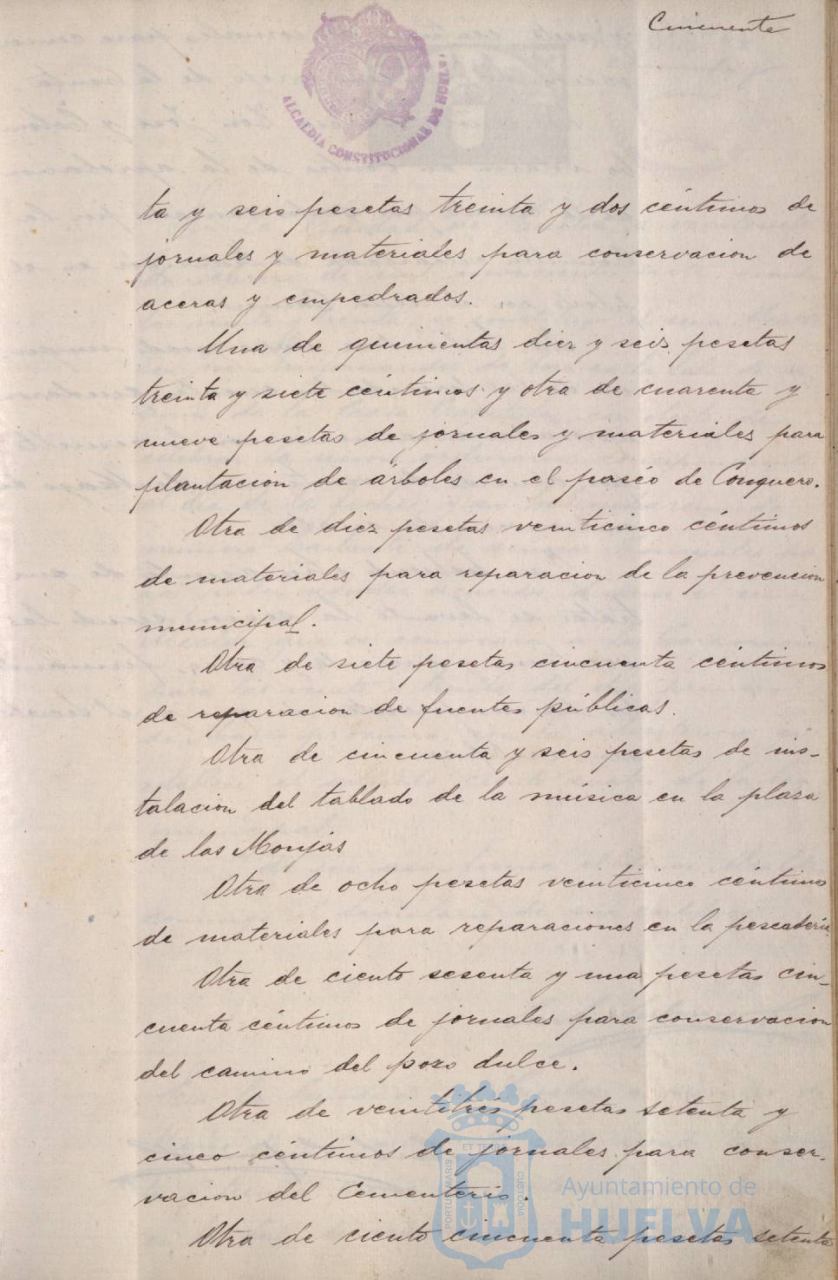 Cincuenta
ALCALDÍA CONSTITUCIONAL DE HUELVA
ta y seis pesetas treinta y dos céntimos de
jornales y materiales para conservacion de
aceras y empedrados.
Una de quinientas diez y seis pesetas
treinta y siete céntimos y otra de cuarenta y
nueve pesetas de jornales y materiales para
plantacion de árboles en el paséo de Conquero.
Otra de diez pesetas veinticinco céntimos
de materiales para reparacion de la prevencion
municipal.
Otra de siete pesetas cincuenta céntimos
de reparacion de fuentes públicas.
Otra de cincuenta y seis pesetas de ins-
talacion del tablado de la música en la plaza
de las Monjas
Otra de ocho pesetas veinticinco céntimos
de materiales para reparaciones en la pescadería
Otra de ciento sesenta y una pesetas cin-
cuenta céntimos de jornales para conservacion
del camino del pozo dulce.
Otra de veintitrés pesetas setenta y
cinco céntimos de jornales para conser-
vacion del Cementerio.
Otra de ciento cincuenta pesetas setenta
PORTUS MARIS ET TERRAE CUSTODIA
Ayuntamiento de
HUELVA